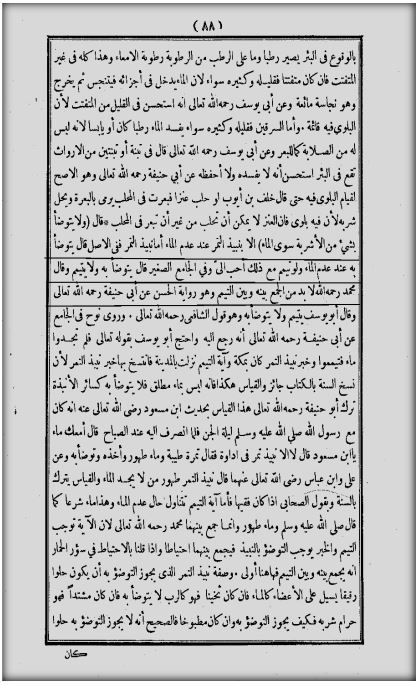 (٨٨)
بالوقوع فى البئر يصير رطبا وما على الرطب من الرطوبة رطوبة الامعاء وهذا كله فى غير
المتفتت فان كان متفتتا فقليله وكثيره سواء لان الماء يدخل فى أجزائه فيتنجس ثم يخرج
وهو نجاسة مائعة وعن أبى يوسف رحمه الله تعالى انه استحسن فى القليل من المتفتت لأن
البلوى فيه قائمة . وأما السرقين فقليله وكثيره سواء يفسد الماء رطبا كان أو يابسا لانه ليس
له من الصلابة كما للبعر وعن أبى يوسف رحمه الله تعالى قال فى تبنة أو تبنتين من الارواث
تقع فى البئر استحسن أنه لا يفسده ولا أحفظه عن أبي حنيفة رحمه الله تعالى وهو الاصح
لقيام البلوى فيه حتى قال خلف بن أيوب لو حلب عنزا فبعرت فى المحلب يرمى بالبعرة ويحل
شربه لأن فيه بلوى فان العنز لا يمكن أن تحلب من غير أن تبعر فى المحلب * قال (ولا يتوضأ
بشئ من الأشربة سوى الماء) الا بنبيذ التمر عند عدم الماء أما نبيذ التمر ففى الاصل قال يتوضأ
به عند عدم الماء ولو تيمم مع ذلك أحب الىّ وفي الجامع الصغير قال يتوضأ به ولا يتيمم وقال
محمد رحمه الله لا بد من الجمع بينه وبين التيمم وهو رواية الحسن عن أبى حنيفة رحمه الله تعالى
وقال أبو يوسف يتيمم ولا يتوضأ به وهو قول الشافعى رحمه الله تعالى . وروى نوح فى الجامع
عن أبى حنيفة رحمه الله تعالى أنه رجع اليه واحتج أبو يوسف بقوله تعالى فلم تجدوا
ماء فتيمموا وخبر نبيذ التمر كان بمكة وآية التيمم نزلت بالمدينة فانتسخ بها خبر نبيذ التمر لأن
نسخ السنة بالكتاب جائز والقياس هكذا فانه ليس بماء مطلق فلا يتوضأ به كسائر الأنبذة
ترك أبو حنيفة رحمه الله تعالى هذا القياس بحديث ابن مسعود رضى الله تعالى عنه انه كان
مع رسول الله صلى الله عليه وسلم ليلة الجن فلما انصرف اليه عند الصباح قال أمعك ماء
يا ابن مسعود قال لا الا نبيذ تمر فى اداوة فقال تمرة طيبة وماء طهور وأخذه وتوضأ به وعن
على وابن عباس رضى الله تعالى عنهما قال نبيذ التمر طهور من لا يجد الماء والقياس يترك
بالسنة وبقول الصحابى اذا كان فقيها فأما آية التيمم تتناول حال عدم الماء وهذا ماء شرعا كما
قال صلى الله عليه وسلم وماء طهور وانما جمع بينهما محمد رحمه الله تعالى لان الآية توجب
التيمم والخبر يوجب التوضؤ بالنبيذ فيجمع بينهما احتياطا واذا قلنا بالاحتياط فى سؤر الحمار
انه يجمع بينه وبين التيمم فهاهنا أولى . وصفة نبيذ التمر الذى يجوز التوضؤ به أن يكون حلوا
رقيقا يسيل على الأعضاء كالماء فان كان ثخينا فهو كالرب لا يتوضأ به فان كان مشتدا فهو
حرام شربه فكيف يجوز التوضؤ به وان كان مطبوخا فالصحيح أنه لا يجوز التوضؤ به حلوا
كان